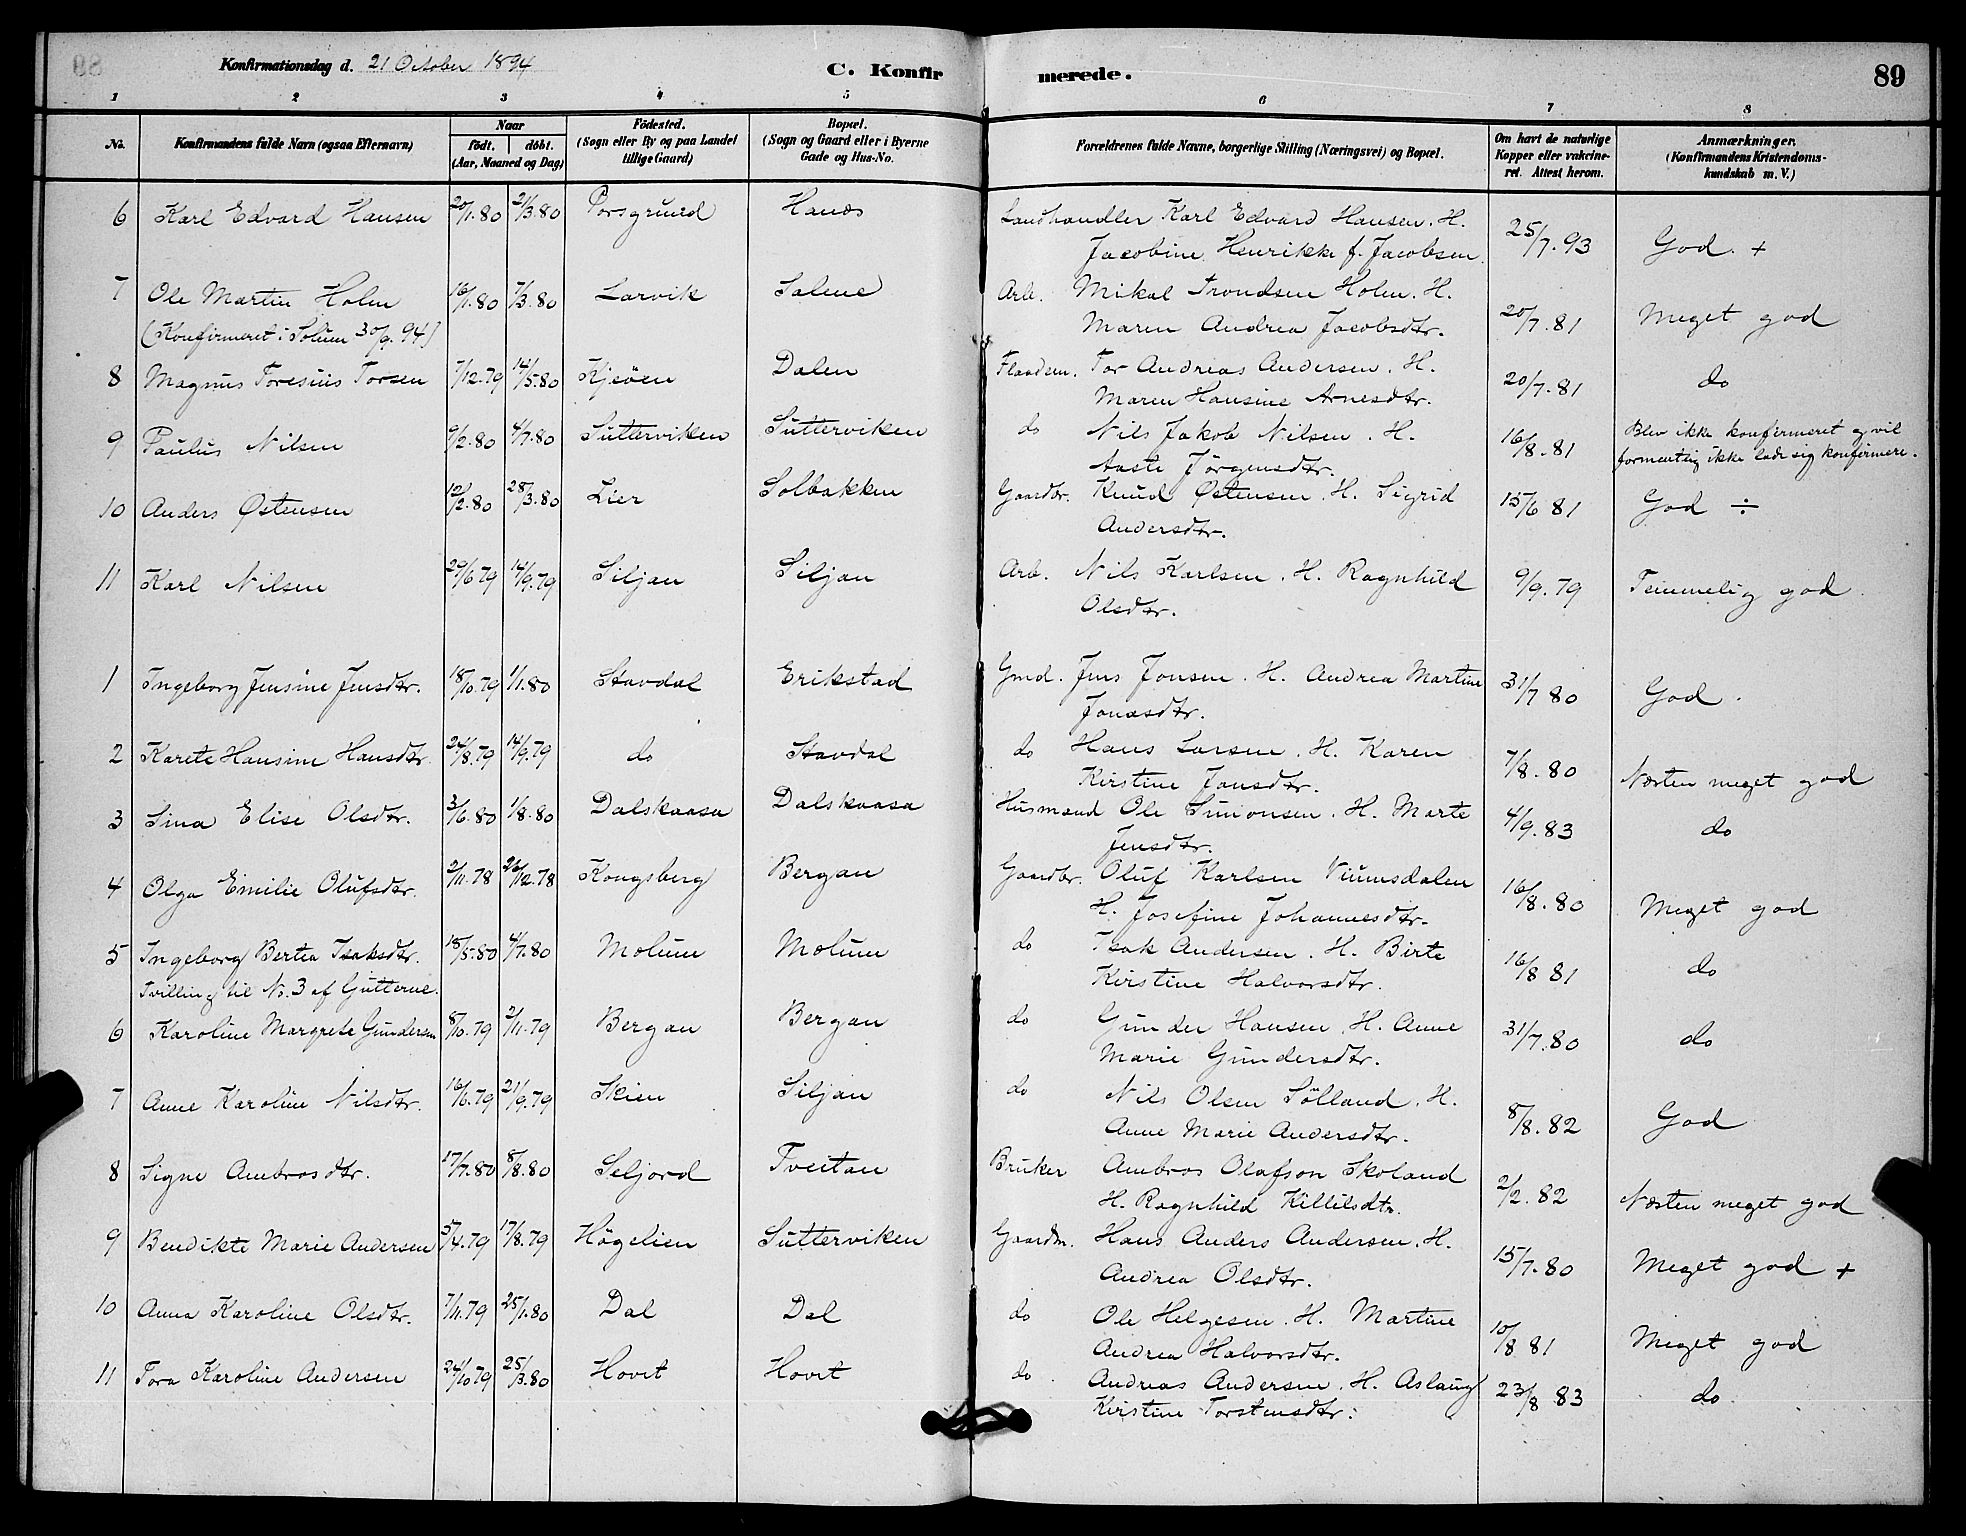 Konfirmationsdag d. 21 October 1894
C. Konfirmerede.
89
1 2 3 4 5 6 7 8
No.
Konfirmandens fulde Navn (ogsaa Efternavn)
Naar
født. døbt.
(Aar, Maaned og Dag)
Födested.
(Sogn eller By og paa Landet
tillige Gaard)
Bopæl.
(Sogn og Gaard eller i Byerne
Gade og Hus-No.
Forældrenes fulde Navne, borgerlige Stilling (Næringsvei) og Bopæl.
Om havt de naturlige
Kopper eller vakcine-
ret. Attest herom.
Anmærkninger.
(Konfirmandens Kristendoms-
kundskab m. V.)
6 Karl Edvard Hansen 20/1.80 2/3.80 Porsgrund Hanas Landhandler Karl Edvard Hansen. H. 25/7.93 God. +
Jacobine Henrikke f. Jacobsen
7 Ole Martin Holm 16/1.80 7/3.80 Larvik Solene Arb. Mikal Trondsen Holm. H. 20/7.81 Meget god
(Konfirmeret i Solum 30/9.94) Maren Andrea Jacobsdtr.
8 Magnus Toresius Torsen 7/12.79 14/5.80 Kjeöen Dalen Flaadem. Tor Andreas Andersen. H. 20/7.81 do
Maren Hansine Arnesdtr.
9 Paulus Nilsen 9/2.80 4/7.80 Sutterviken Sutterviken do Nils Jakob Nilsen. H. 16/8.81 Blev ikke konfirmeret og vil
Aaste Jörgensdtr. formentlig ikke lade sig konfirmere.
10 Anders Østensen 12/2.80 28/3.80 Lier Solbakken Gaardbr. Knud Østensen. H. Sigrid 15/6 81 God ÷
Andersdtr.
11 Karl Nilsen 29/6 79 14/9.79 Siljan Siljan Arb. Nils Karlsen. H. Ragnhild 9/9.79 Temmelig god.
Olsdtr.
1 Ingeborg Jensine Jensdtr. 18/10.79 1/1.80 Stavdal Erikstad Gmd. Jens Jonsen. H. Andrea Martine 31/7 80 God.
Jonasdtr.
2 Karete Hansine Hansdtr. 24/8.79 14/9.79 do Stavdal do Hans Larsen. H. Karen 7/8.80 Næsten meget god
Kirstine Jonsdtr.
3 Sina Elise Olsdtr. 3/6.80 1/8.80 Dalskaasa Dalskaasa Husmand Ole Simonsen. H. Marte 4/9.83 do
Jensdtr.
4 Olga Emilie Olufsdtr. 2/11.78 26/12.78 Kongsberg Bergan Gaardbr. Oluf Karlsen Viumsdalen 16/8.80 Meget god
H. Josefine Johannesdtr.
5 Ingeborg Bertea Isaksdtr. 18/5.80 4/7.80 Mölum Mölum do Isak Andersen. H. Birte 16/8 81 do
Tvilling til No. 3 af Gutterne. Kirstine Halvorsdtr.
6 Karoline Margrete Gundersen 8/10.79 2/11.79 Bergan Bergan do Gunder Hansen. H. Anne 31/7.80 do
Marie Gundersdtr.
7 Anne Karoline Nilsdtr. 16/6.79 21/9.79 Skien Siljan do Nils Olsen Sölland. H. 8/8.82 God
Anne Marie Andersdtr.
8 Signe Ambrosdtr. 17/7.80 8/8.80 Seljord Tveitan Bruker Ambros Olafson Skoland 2/2.82 Næsten meget god
H. Ragnhild Killilsdtr.
9 Bendikte Marie Andersen 5/4.79 17/8.79 Högelien Sutterviken Gaardm. Hans Anders Andersen. H. 15/7.80 Meget god +
Andrea Olsdtr.
10 Anna Karoline Olsdtr. 7/11.79 25/1.80 Dal Dal do Ole Helgesen. H. Martine 10/8 81 Meget god
Andrea Halvorsdtr.
11 Tora Karoline Andersen 24/10 79 25/3.80 Hovet Hovet do Andreas Andersen. H. Aslaug 23/8 83 do
Kirstine Torstensdtr.